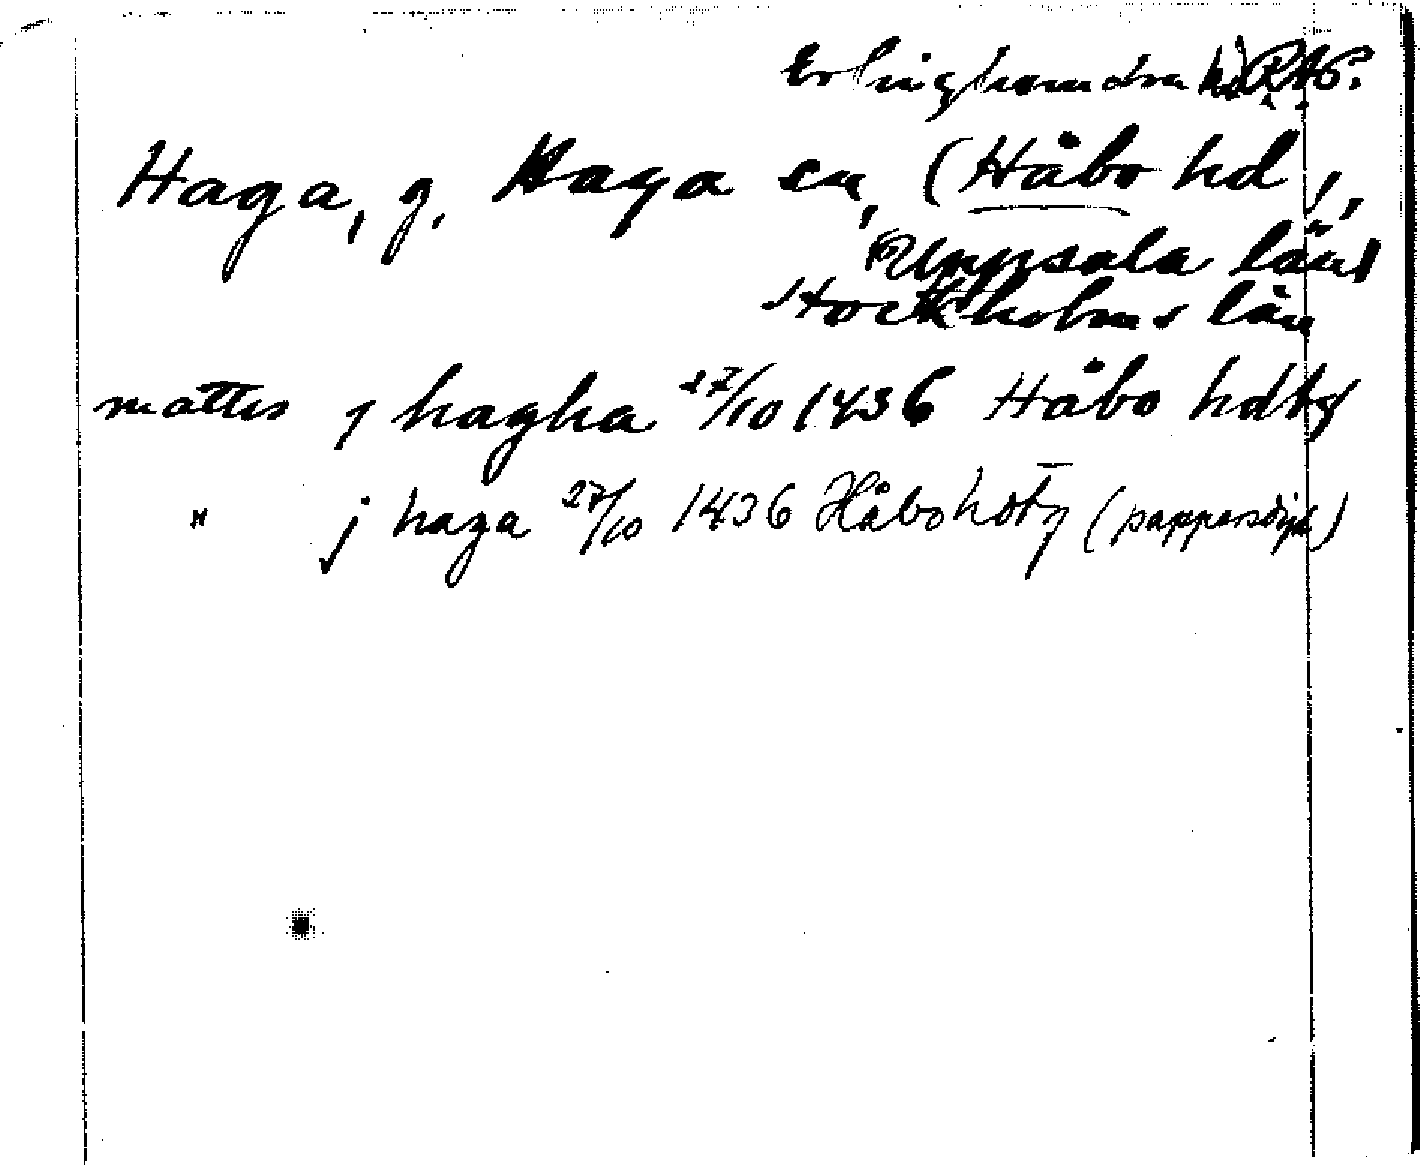 Erlinghundra hd RAP.
Haga, g. Haga sn, (Håbo hd,,
Uppsala län)
Stockholms län
mattis j hagha 27/10 1436 Håbo hdtg
" j haga 27/10 1436 Håbo hdtg (pappersdipl)